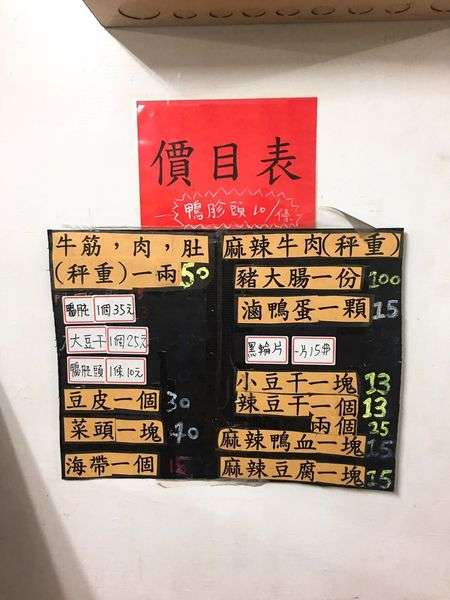 價目表
鴨胗頭10/條
牛筋，肉，肚
(秤重)一兩50
鴨胗 1個35元
大豆干 1個25元
鴨胗頭 1條10元
豆皮一個30
菜頭一塊10
海帶一個15
麻辣牛肉(秤重)
豬大腸一份100
滷鴨蛋一顆15
黑輪片 一片15
小豆干一塊13
辣豆干一個13
兩個25
麻辣鴨血一塊15
麻辣豆腐一塊15